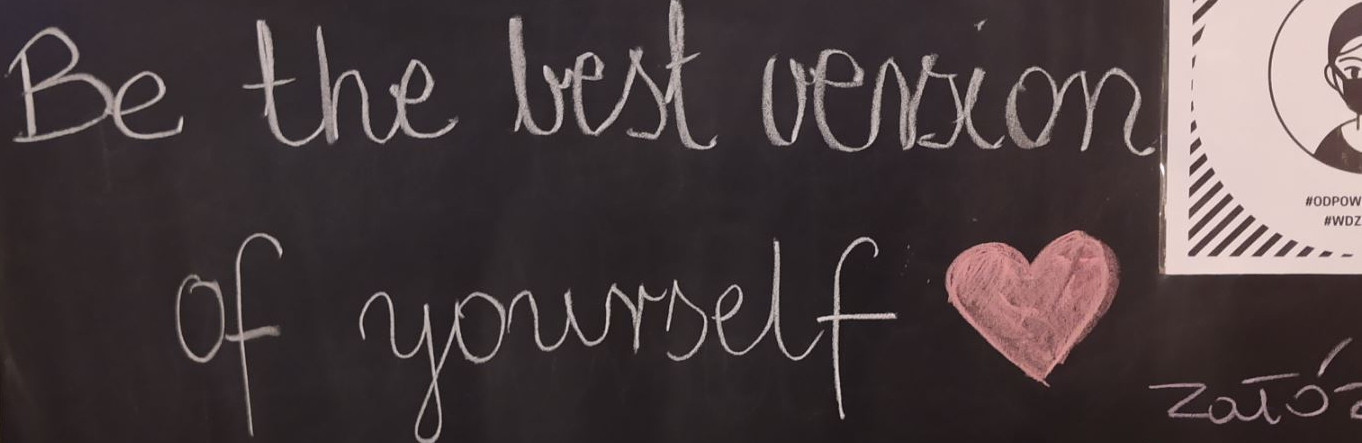 Be the best version
of yourself
#ODPOW
#WDZ